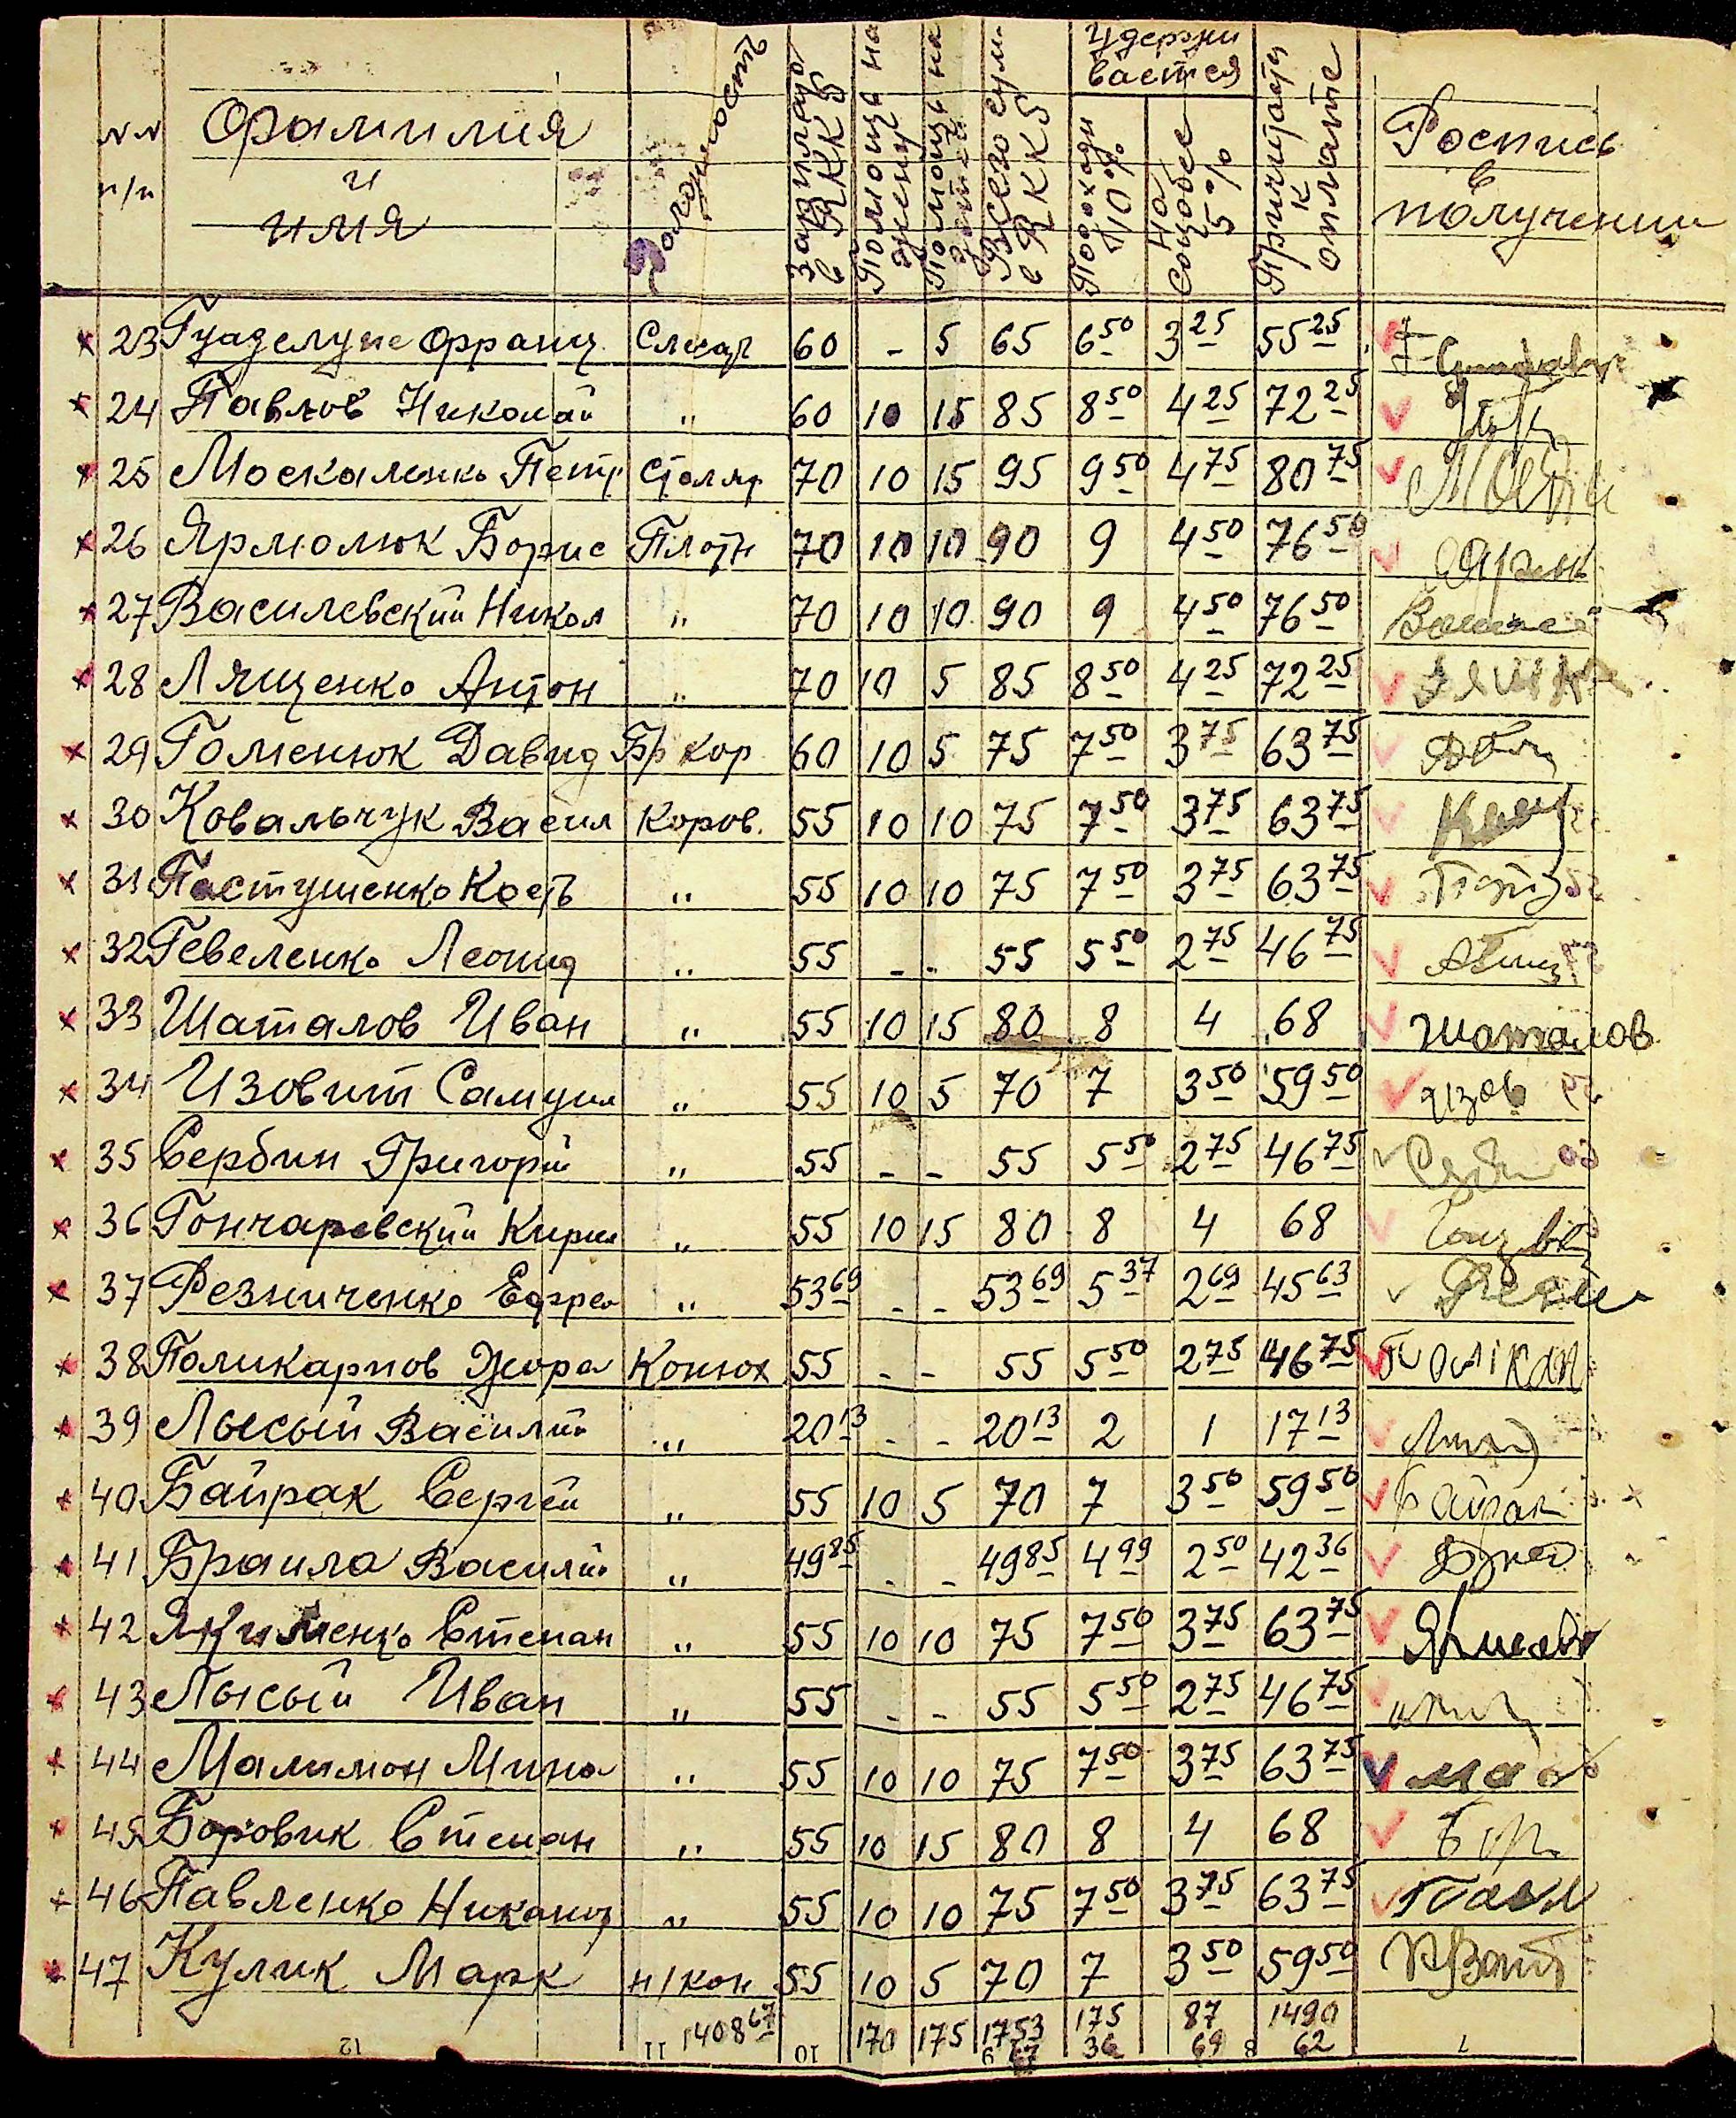 NN п/п Фамилия и имя Должность Зарплата в RKKS Помощь на жену Помощь на детей Всего сум. в RKKS Удерживается Подоходн 10% На соцобес 5% Причитает к оплате Роспись в получении
23 Гуаделупе Франц. Слесар 60 - 5 65 6 50 3 25 55 25
24 Павлов Николай " 60 10 15 85 8 50 4 25 72 25
25 Москаленко Петр Столяр 70 10 15 95 9 50 4 75 80 75
26 Ярмолюк Борис Плотн 70 10 10 90 9 4 50 76 50
27 Василевский Никол " 70 10 10 90 9 4 50 76 50
28 Лященко Антон " 70 10 5 85 8 50 4 25 72 25
29 Гоменюк Давид Бр кор 60 10 5 75 7 50 3 75 63 75
30 Ковальчук Васил Коров. 55 10 10 75 7 50 3 75 63 75
31 Пастушенко Кость " 55 10 10 75 7 50 3 75 63 75
32 Гевеленко Леонид " 55 - - 55 5 50 2 75 46 75
33 Шаталов Иван " 55 10 15 80 8 4 68 Шаталов
34 Изовит Самуил " 55 10 5 70 7 3 50 59 50 Изов
35 Сербин Григорій " 55 - - 55 5 50 2 75 46 75
36 Гончаревский Кирил " 55 10 15 80 8 4 68
37 Резниченко Ефрем " 53 69 - - 53 69 5 37 2 69 45 63
38 Поликарпов Жора Конюх 55 - - 55 5 50 2 75 46 75 Полікап
39 Лысый Василий " 20 13 - - 20 13 2 1 17 13
40 Байрак Сергей " 55 10 5 70 7 3 50 59 50 Байрак
41 Браила Василий " 49 85 - - 49 85 4 99 2 50 42 36
42 Якименко Степан " 55 10 10 75 7 50 3 75 63 75
43 Лысый Иван " 55 - - 55 5 50 2 75 46 75
44 Малимон Мина " 55 10 10 75 7 50 3 75 63 75
45 Боровик Степан " 55 10 15 80 8 4 68 Бор
46 Павленко Никанор " 55 10 10 75 7 50 3 75 63 75 Павл
47 Кулик Марк н/кон 55 10 5 70 7 3 50 59 50
1408 67 170 175 1753 67 175 36 87 69 1490 62
12 11 10 9 8 7